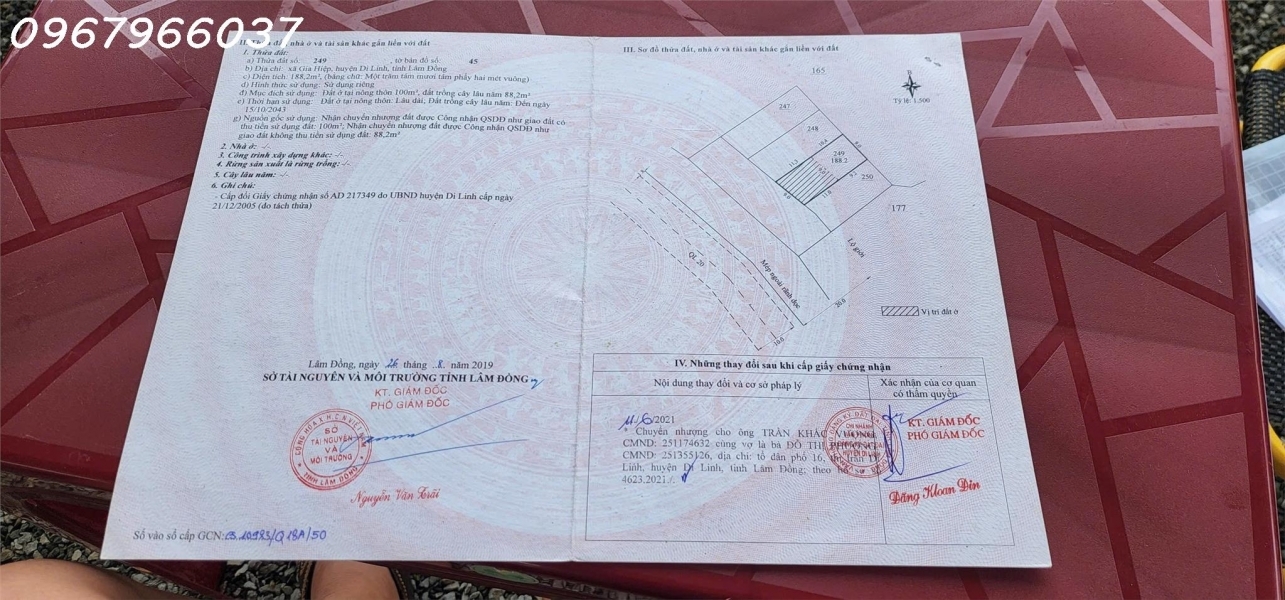 0967966037
II. Thửa đất, nhà ở và tài sản khác gắn liền với đất
1. Thửa đất:
a) Thửa đất số: 249 , tờ bản đồ số: 45
b) Địa chỉ: xã Gia Hiệp, huyện Di Linh, tỉnh Lâm Đồng
c) Diện tích: 188,2m², (bằng chữ: Một trăm tám mươi tám phẩy hai mét vuông)
d) Hình thức sử dụng: Sử dụng riêng
đ) Mục đích sử dụng: Đất ở tại nông thôn 100m², đất trồng cây lâu năm 88,2m²
e) Thời hạn sử dụng: Đất ở tại nông thôn: Lâu dài; Đất trồng cây lâu năm: Đến ngày
15/10/2043
g) Nguồn gốc sử dụng: Nhận chuyển nhượng đất được Công nhận QSDĐ như giao đất có
thu tiền sử dụng đất: 100m²; Nhận chuyển nhượng đất được Công nhận QSDĐ như
giao đất không thu tiền sử dụng đất: 88,2m²
2. Nhà ở: -/-
3. Công trình xây dựng khác: -/-
4. Rừng sản xuất là rừng trồng: -/-
5. Cây lâu năm: -/-
6. Ghi chú:
- Cấp đổi Giấy chứng nhận số AD 217349 do UBND huyện Di Linh cấp ngày
21/12/2005 (do tách thửa)
Lâm Đồng, ngày 26 tháng 8 năm 2019
SỞ TÀI NGUYÊN VÀ MÔI TRƯỜNG TỈNH LÂM ĐỒNG
KT. GIÁM ĐỐC
PHÓ GIÁM ĐỐC
SỞ
TÀI NGUYÊN
VÀ
MÔI TRƯỜNG
TỈNH LÂM ĐỒNG
Nguyễn Văn Trãi
Số vào sổ cấp GCN:
III. Sơ đồ thửa đất, nhà ở và tài sản khác gắn liền với đất
165
B
Tỷ lệ: 1:500
247
248
249
188.2
250
177
QL 20
Mép ngoài rãnh dọc
Lộ giới
20.0
10.0
Vị trí đất ở
IV. Những thay đổi sau khi cấp giấy chứng nhận
Nội dung thay đổi và cơ sở pháp lý
Xác nhận của cơ quan
có thẩm quyền
11/6/2021
* Chuyển nhượng cho ông TRẦN KHẮC
CMND: 251174632 cùng vợ là bà ĐỖ THỊ
CMND: 251355126, địa chỉ: tổ dân phố 16, thị trấn Di
Linh, huyện Di Linh, tỉnh Lâm Đồng; theo hồ sơ
4623.2021./.
KT. GIÁM ĐỐC
PHÓ GIÁM ĐỐC
Đặng Kloan Din